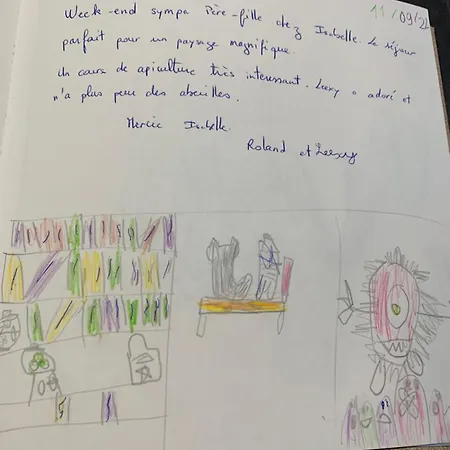 11/09/21
Week-end sympa Père-fille chez Isabelle. Le séjour
parfait pour un paysage magnifique.
Un cours de apiculture très interessant. a adoré et
n'a plus peur des abeilles.
Mercie Isabelle.
Roland et